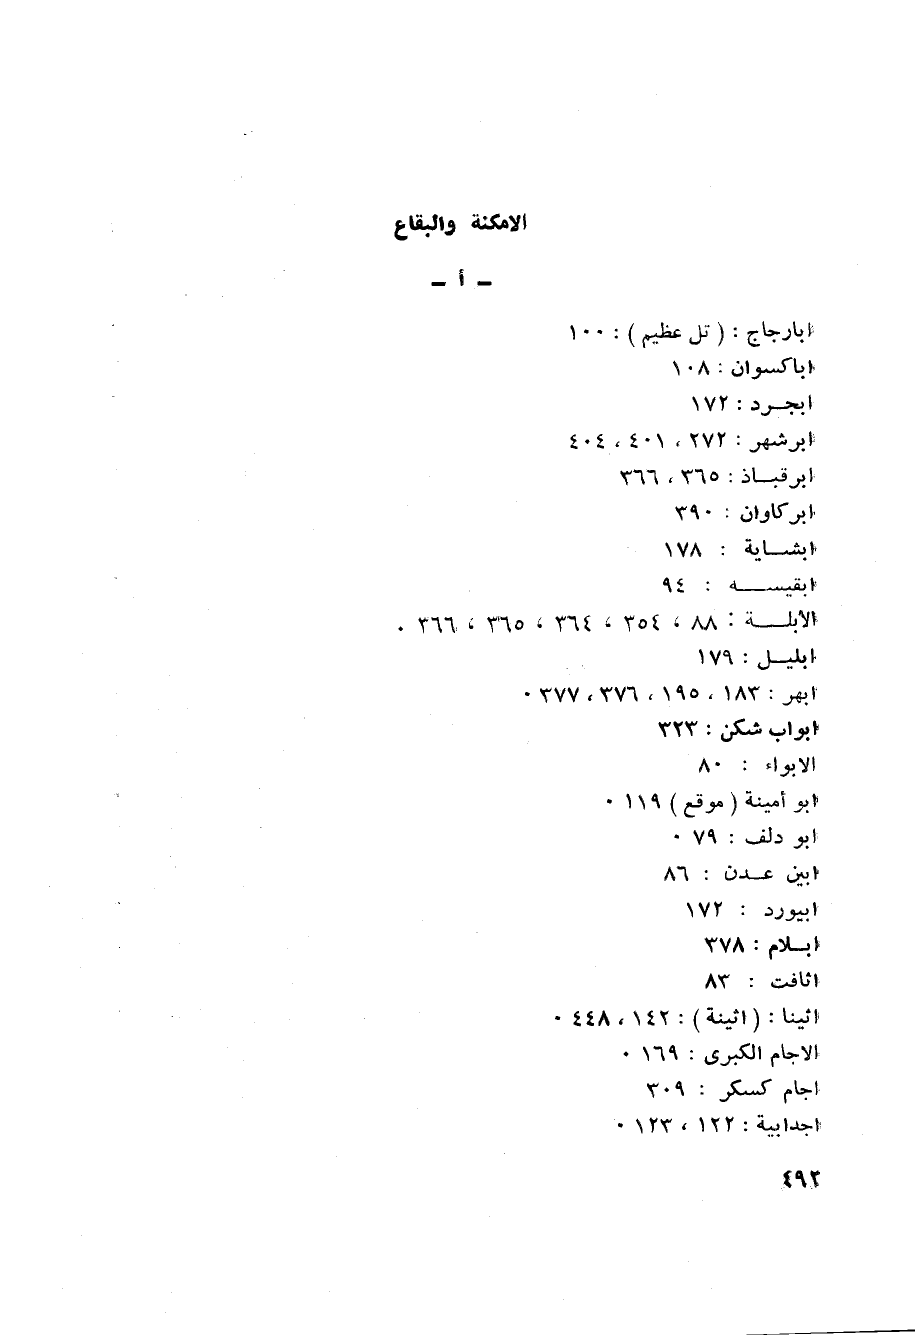 الامكنة والبقاع
ـ أ ـ
ابارجاج : ( تل عظيم ) : ١٠٠
اباكسوان : ١٠٨
ابجـرد : ١٧٢
ابرشهر : ٢٧٢ ، ٤٠١ ، ٤٠٤
ابرقبـاذ : ٣٦٥ ، ٣٦٦
ابركاوان : ٣٩٠
ابشـاية : ١٧٨
ابقيسـه : ٩٤
الأبلـة : ٨٨ ، ٣٥٤ ، ٣٦٤ ، ٣٦٥ ، ٣٦٦ .
ابليـل : ١٧٩
ابهر : ١٨٣ ، ١٩٥ ، ٣٧٦ ، ٣٧٧ .
ابواب شكن : ٣٢٣
الابواء : ٨٠
ابو أمينة ( موقع ) ١١٩ .
ابو دلف : ٧٩ .
ابين عـدن : ٨٦
ابيورد : ١٧٢
ابـلام : ٣٧٨
اثافت : ٨٣
اثينا : ( اثينة ) : ١٤٢ ، ٤٤٨ .
الاجام الكبرى : ١٦٩ .
اجام كسكر : ٣٠٩
اجدابية : ١٢٢ ، ١٢٣ .
٤٩٢